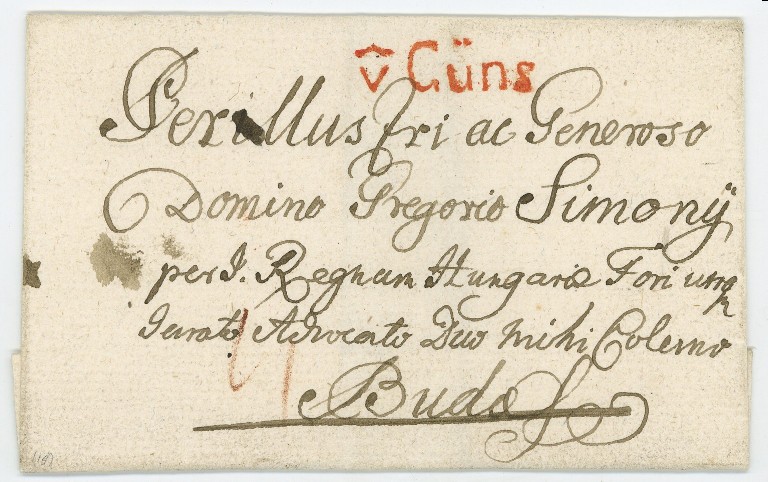 v̂ Güns
Perillustri ac Generoso
Domino Gregorio Simonÿ
per I. Regnum Hungariæ Fori
Jurato Advocato Dno mihi Colendo
Budæ